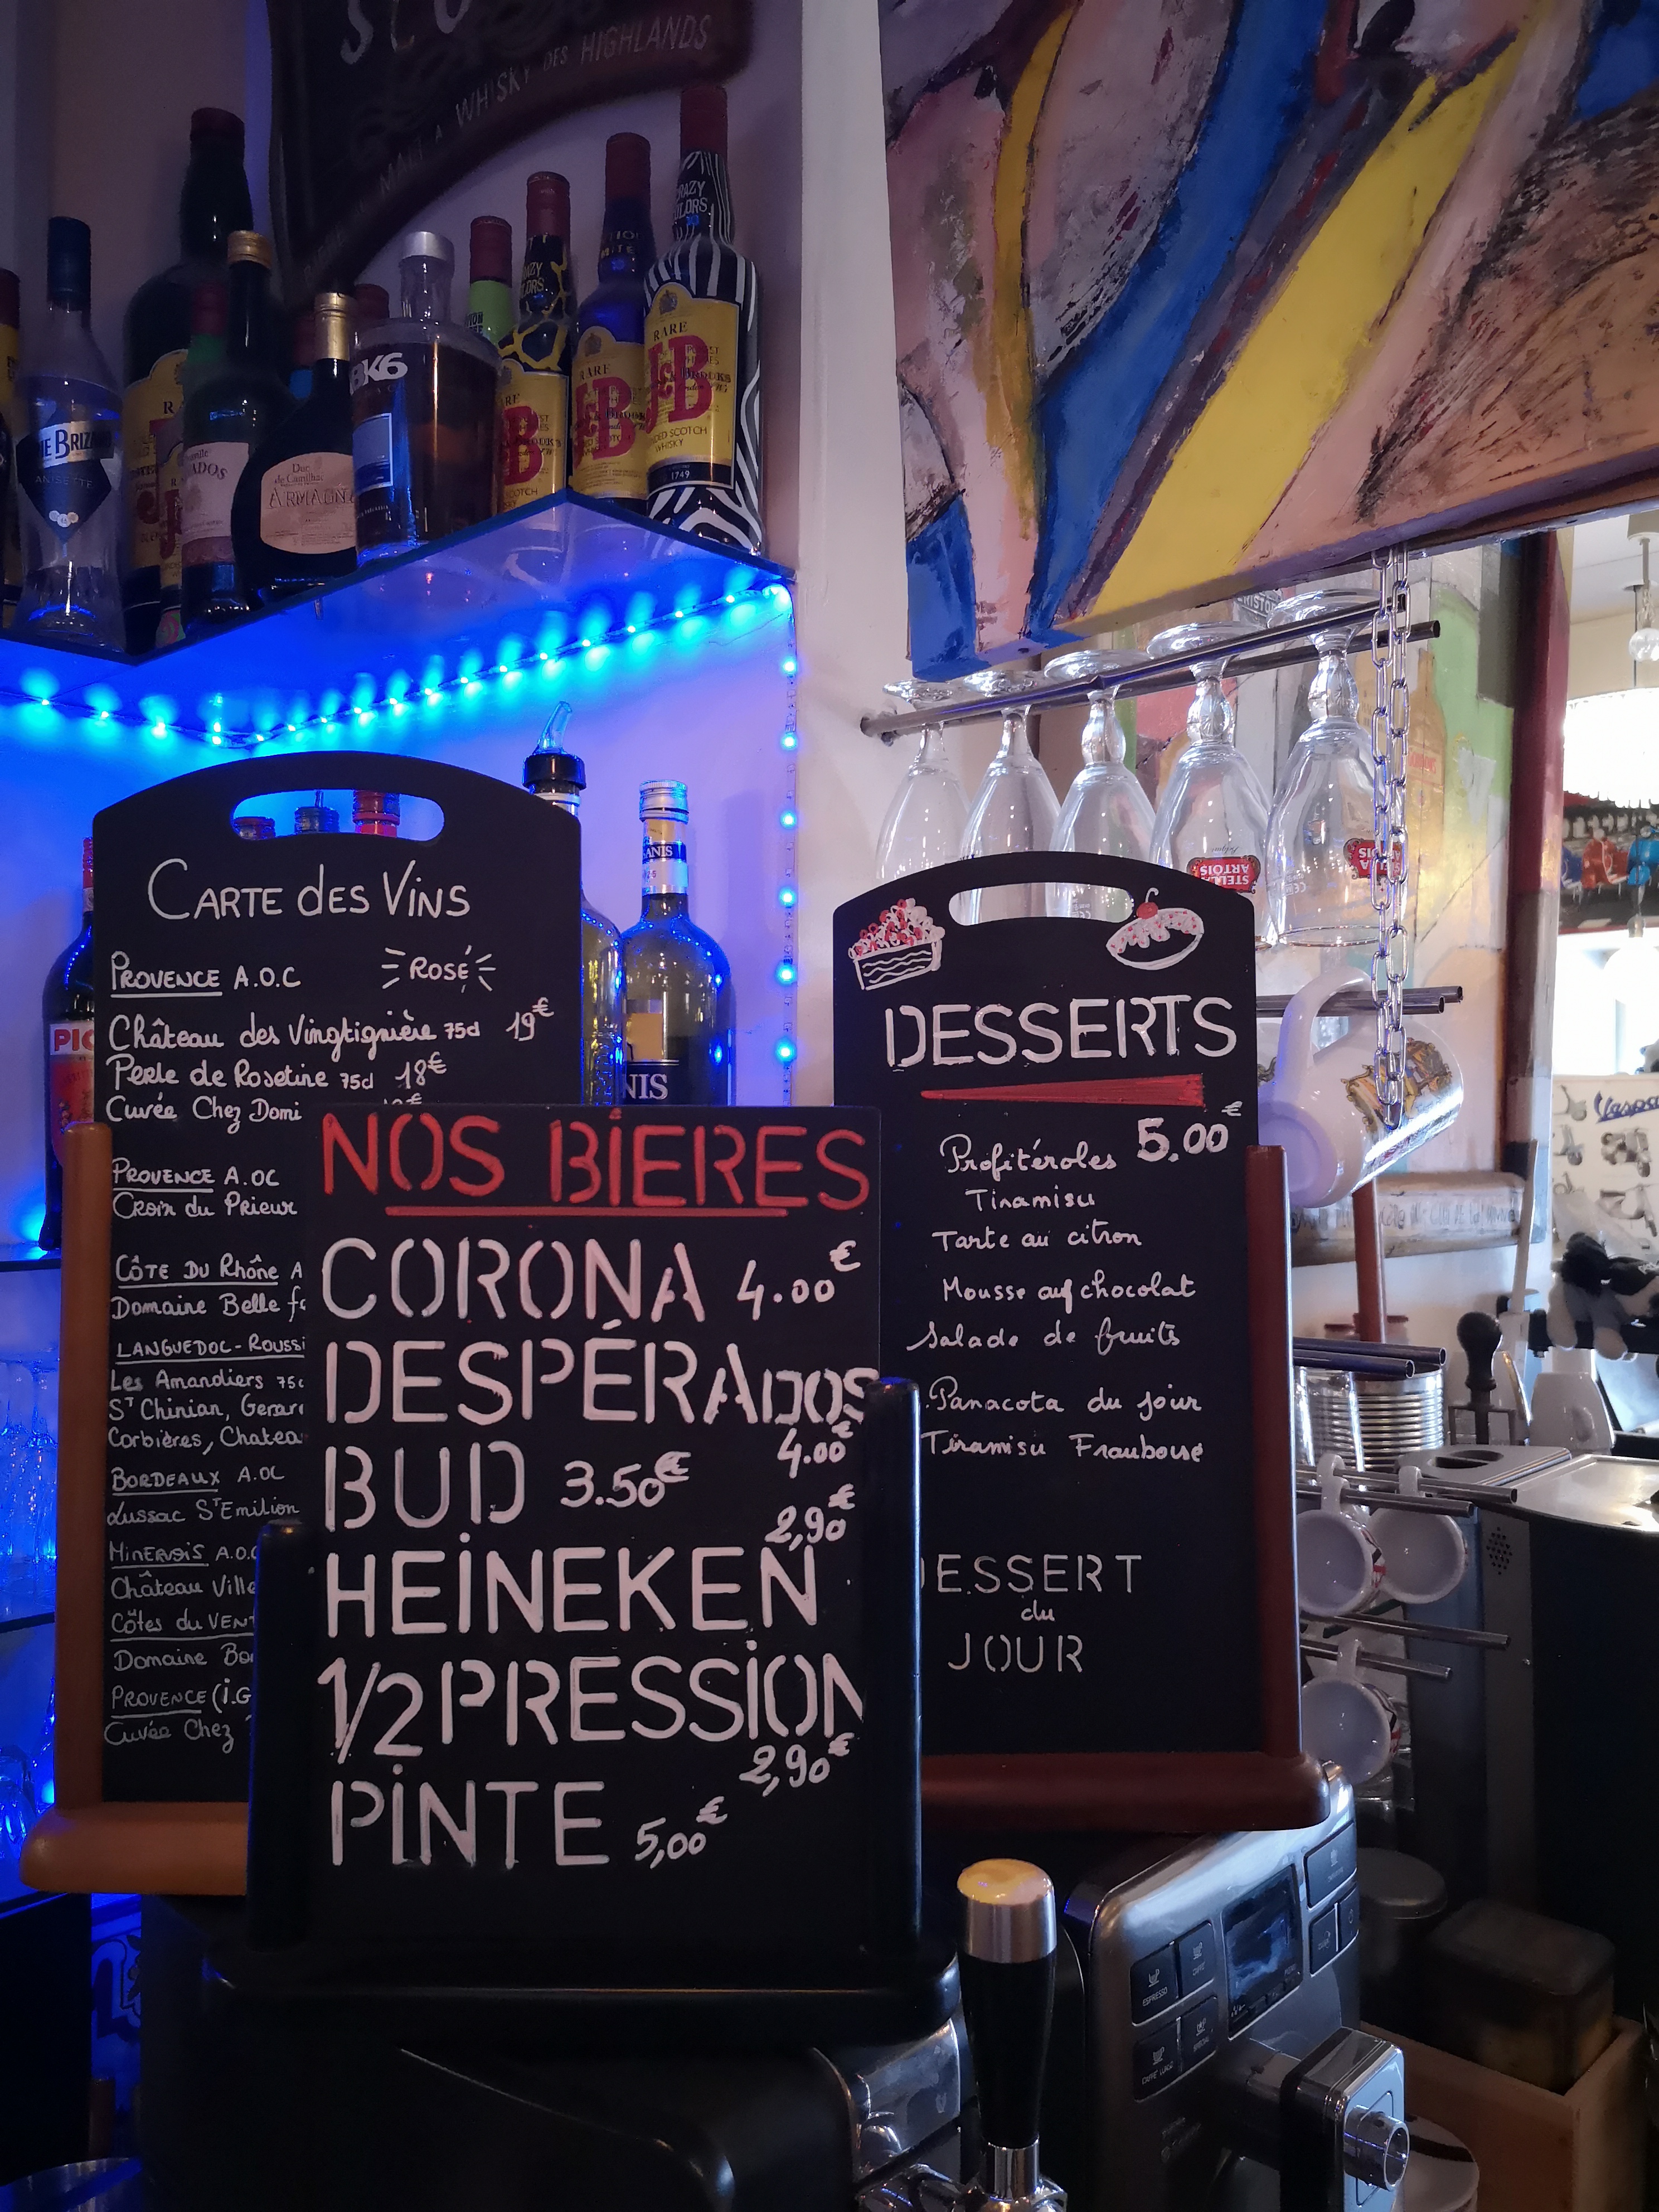 WHISKY DES HIGHLANDS
BK6
ANISETTE
Duc
RARE
RARE
RARE
J&B
SCOTCH
WHISKY
1749
STELLA
ARTOIS
CARTE des VINS
PROVENCE A.O.C ROSÉ
Château des Vingtignière 75cl 19€
Perle de Rosetine 75cl 18€
Cuvée Chez Domi
PROVENCE A.OC
Croix du Prieur
CÔTE DU Rhône A
Domaine Belle
LANGUEDOC-ROUSSI
Les Amandiers 75c
ST Chinian, Gerar
Corbières, Chatea
BORDEAUX A.OC
Lussac ST Emilion
MINERVOIS A.O.C
Château Ville
Côtes du VENT
Domaine Bo
PROVENCE (i.G
Cuvée Chez
NOS BiERES
CORONA 4.00€
DESPÉRADOS
4.00€
BUD 3.50€
2,90€
HEiNEKEN
1/2 PRESSiON
2,90€
PiNTE 5,00€
DESSERTS
5.00€
Profitéroles
Tiramisu
Tarte au citron
Mousse au chocolat
Salade de fruits
Panacota du jour
Tiramisu Framboise
DESSERT
du
JOUR
Vespa
ESPRESSO